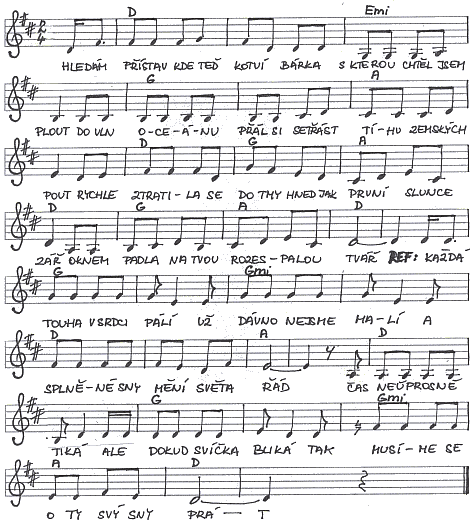 D Emi
HLEDÁM PŘÍSTAV KDE TEĎ KOTVÍ BÁRKA S KTEROU CHTĚL JSEM
G A
PLOUT DO VLN O-CE-Á-NU PŘÁL SI SETŘÁST TÍ-HU ZEMSKÝCH
D G A
POUT RYCHLE ZTRATI-LA SE DO TMY HNED JAK PRVNÍ SLUNCE
D G A D
ZÁŘ OKNEM PADLA NA TVOU ROZES-PALOU TVÁŘ REF: KAŽDÁ
G Gmi
TOUHA V SRDCI PÁLÍ UŽ DÁVNO NEJSME MA-LÍ A
D A D
SPLNĚ-NÉ SNY MĚNÍ SVĚTA ŘÁD ČAS NEÚPROSNĚ
G Gmi
TIKÁ ALE DOKUD SVÍČKA BLIKÁ TAK MUSÍ-ME SE
A D
O TY SVÝ SNY PRÁ-T